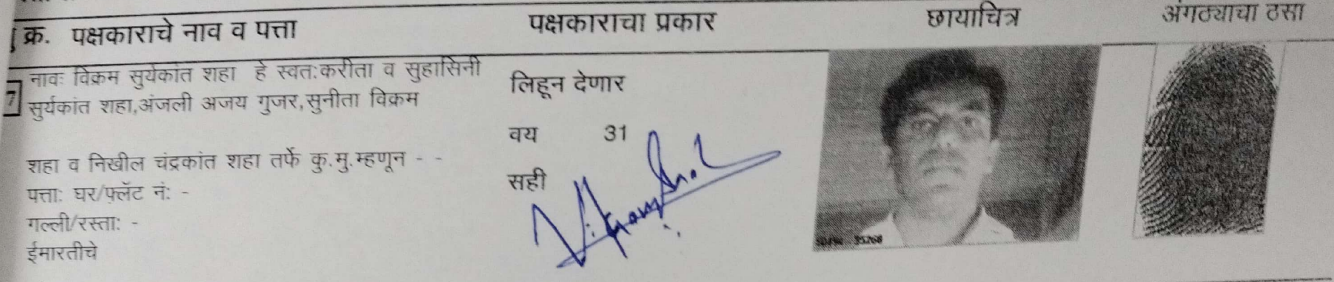 क्र. पक्षकाराचे नाव व पत्ता पक्षकाराचा प्रकार छायाचित्र अंगठ्याचा ठसा
7 नावः विक्रम सुर्यकांत शहा हे स्वतःकरीता व सुहासिनी
सुर्यकांत शहा,अंजली अजय गुजर,सुनीता विक्रम
लिहून देणार
वय 31
शहा व निखील चंद्रकांत शहा तर्फे कु.मु.म्हणून - -
सही
पत्ताः घर/फ्लॅट नंः -
गल्ली/रस्ताः -
ईमारतीचे